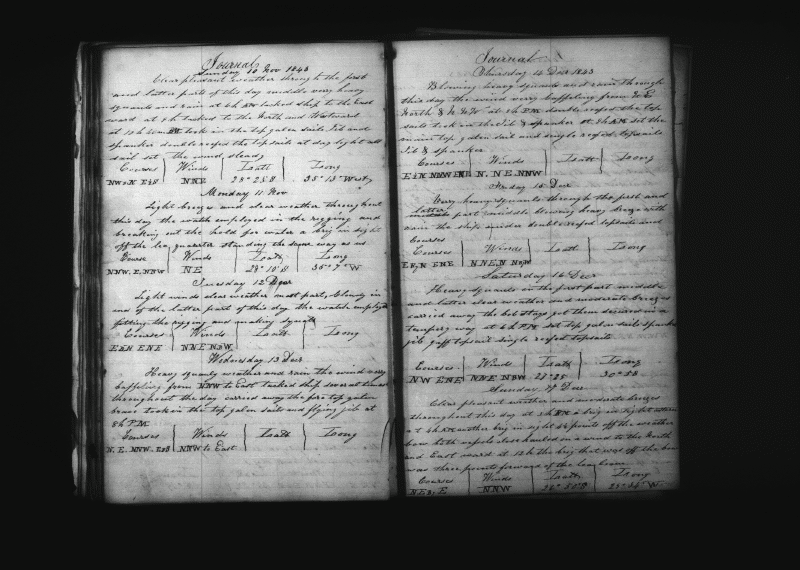 Journal
Sunday 10 Nov 1843
Clear pleasant weather through the first
and latter parts of this day middle very heavy
squalls and rain at 6 h AM tacked ship to the East
ward at 9 h tacked to the North and Westward
at 10 h took in the top galen sails Jib and
spanker double reefed the topsails at day light all
sail set the wind steady
Courses Winds Latt Long
NNE 28° 25 S 35° 13 W
Monday 11 Nov
Light breeze and clear weather throughout
this day the watch employed in the rigging and
breaking out the hold for water a brig in sight
off the lee quarter standing the same way as us
Course Winds Latt Long
NNW. E. NNW NE W
Tuesday 12 Decr
Light winds clear weather most part, Cloudy in
one of the latter part of this day the watch employed
fitting the rigging and making
Courses Winds Latt Long
ENE NNE
Wednesday 13 Decr
Heavy squally weather and rain the wind very
baffling from NNW to East tacked ship several times
throughout the day carried away the fore top galen
brace took in the top galen sails and flying jib at
8 h P.M.
Courses Winds Latt Long
N. E. NNW. NNW to East
Journal
Thursday 14 Decr 1843
Blowing heavy squalls and rain through
this day the wind very baffling from
North & NNW at double reefed the top
sails took in the Jib & spanker at set the
main top galen sail and single reefed topsails
Jib & spanker
Courses Winds Latt Long
N. NE. NNW
Friday 15 Decr
Very heavy squalls through the first and
latter part middle blowing heavy breeze with
rain the ship under double reefed topsails and
Courses
Courses Winds Latt Long
ENE NNE. N
Saturday 16 Decr
Heavy squalls in the first part middle
and latter clear weather and moderate breezes
carried away the bob stays got them secured in a
temporary way at 6 h PM set top galen sails spanker
jib gaff topsail single reefed topsails
Courses Winds Latt Long
NW ENE NNE 30° 58
Sunday 17 Decr
Clear pleasant weather and moderate breezes
throughout this day at a brig in sight astern
at another brig in sight points off the weather
bow both vessels close hauled on a wind to the North
and East ward at 12 h the brig that was off the bow
was three points forward of the lee beam
Courses Winds Latt Long
NNW